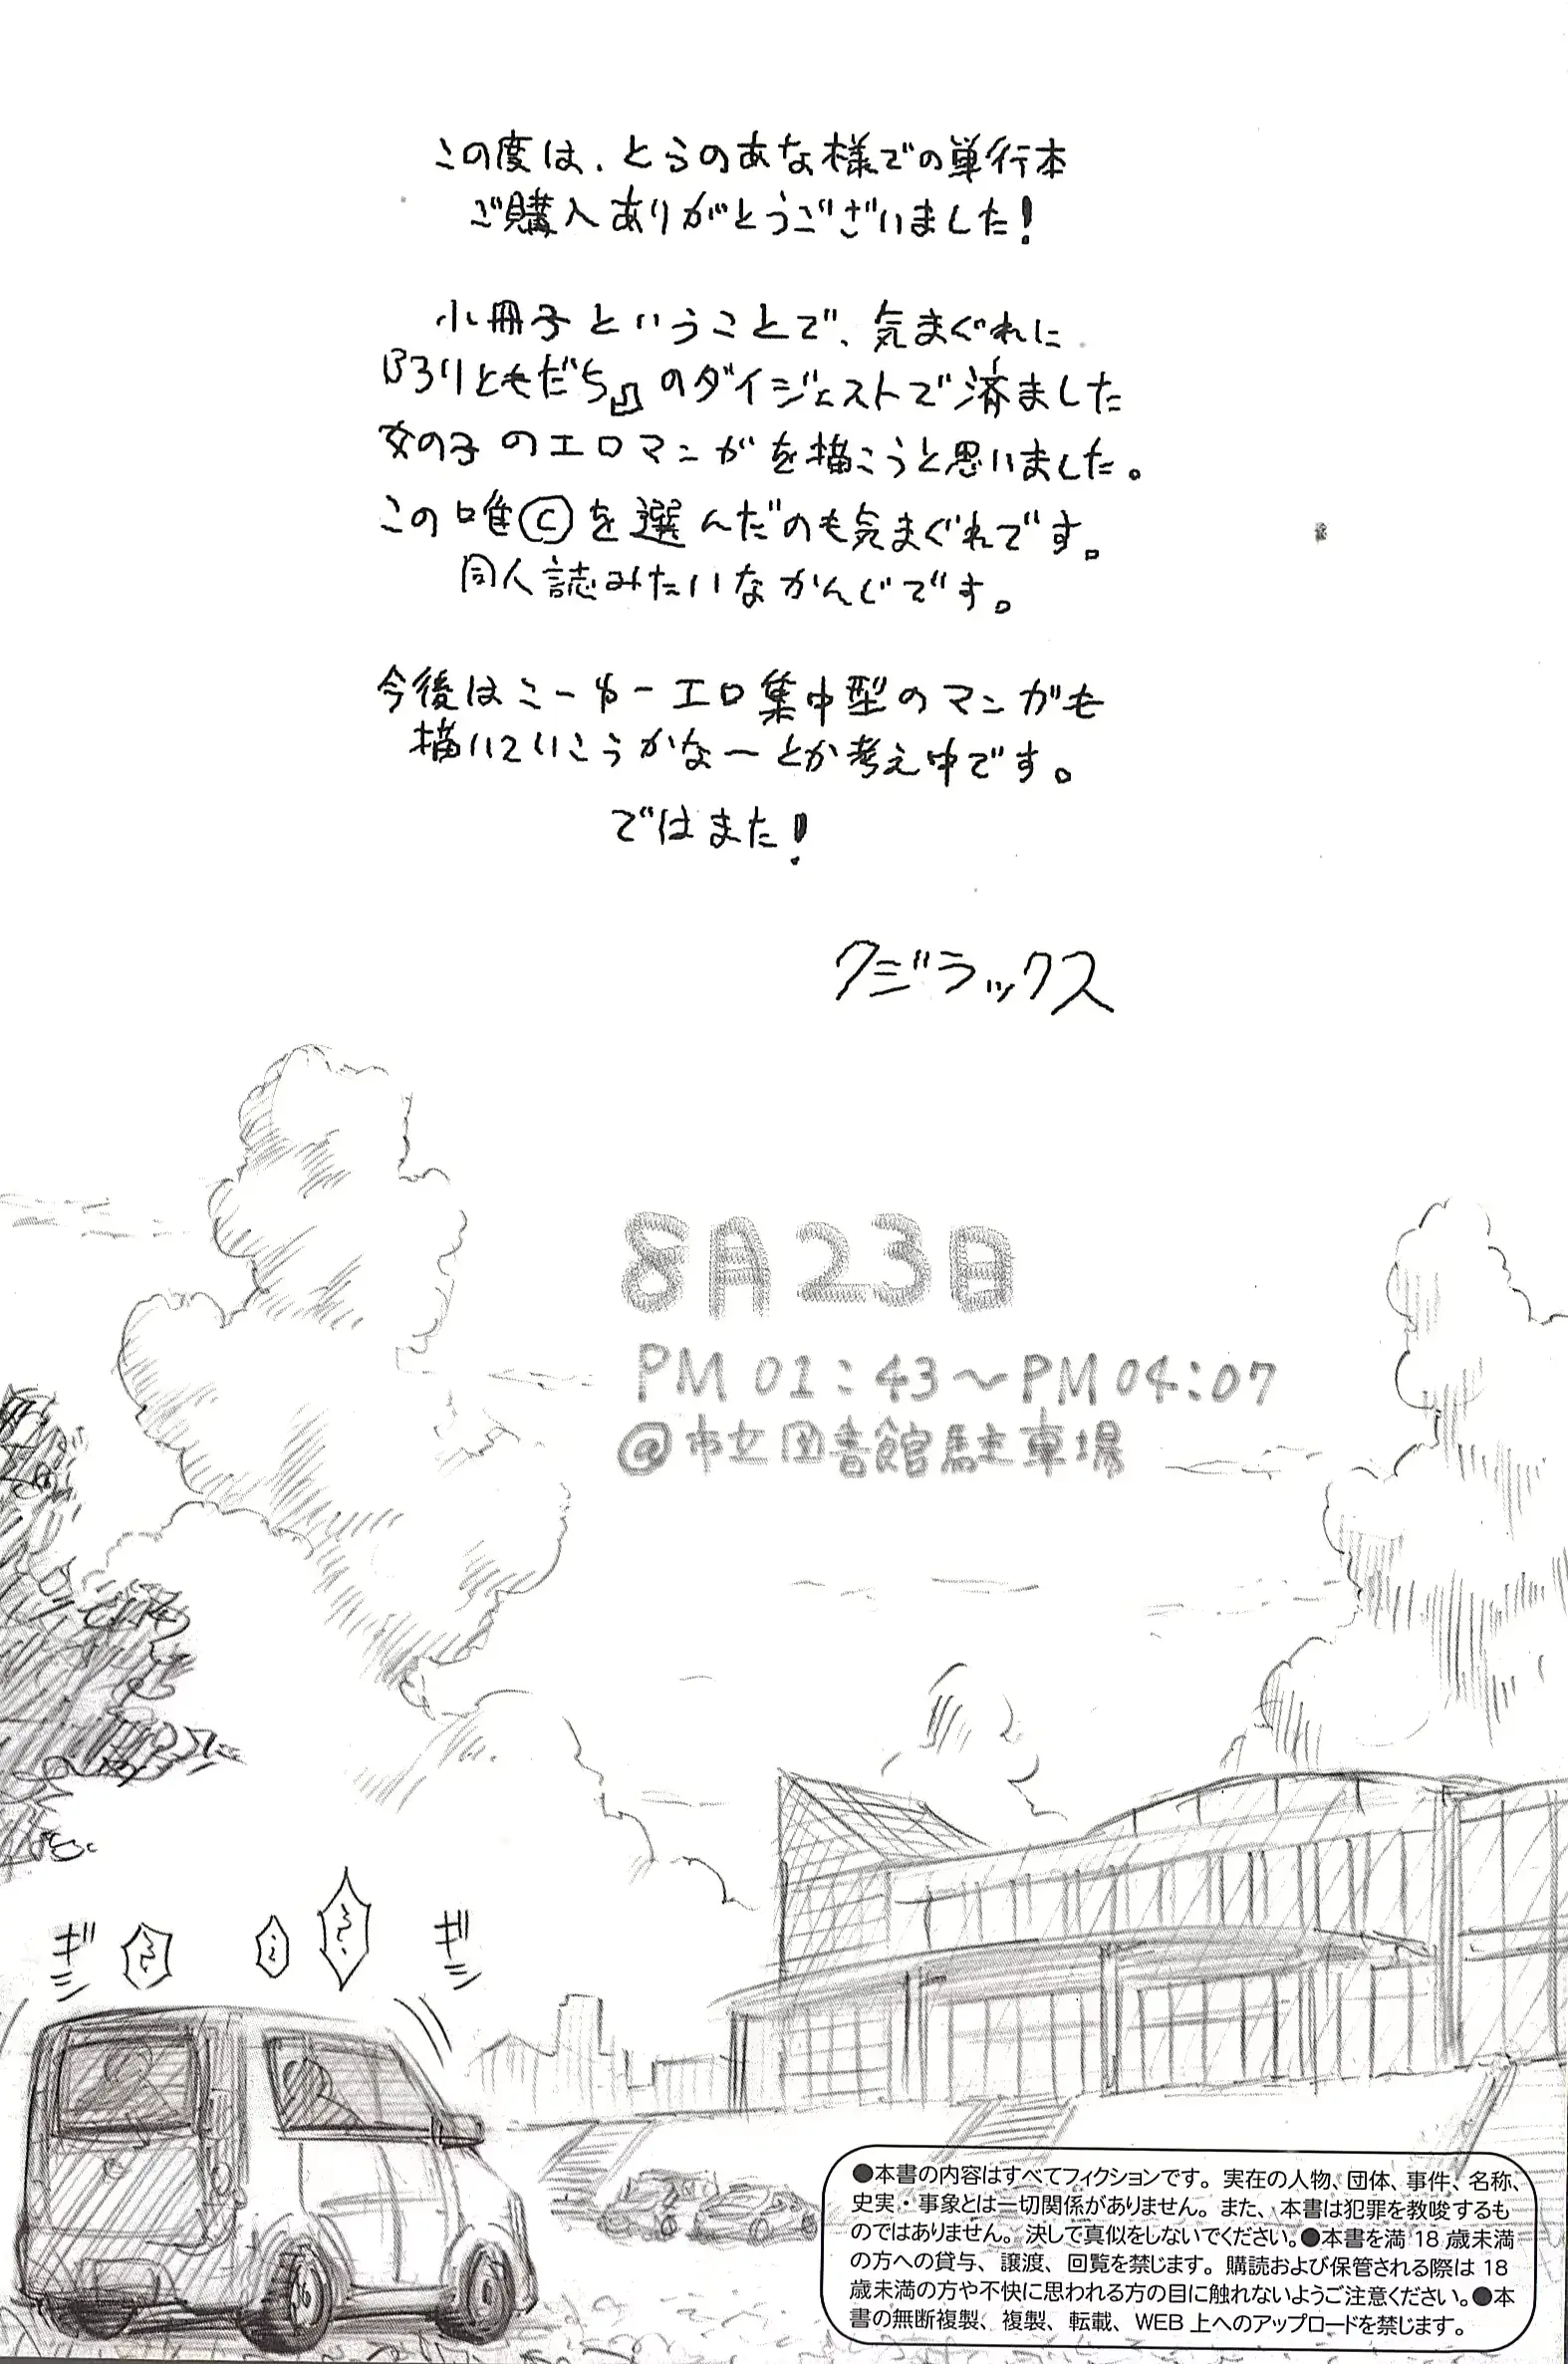 この度は、とらのあな様での単行本
ご購入ありがとうございました!
小冊子ということで、気まぐれに
『ろりともだち』のダイジェストで済ました
女の子のエロマンガを描こうと思いました。
この唯©を選んだのも気まぐれです。
同人誌みたいなかんじです。
今後はこーゆーエロ集中型のマンガも
描いていこうかな〜とか考え中です。
ではまた!
クジラックス
8月23日
PM 01:43〜PM 04:07
@市立図書館駐車場
ギ
ギ
●本書の内容はすべてフィクションです。実在の人物、団体、事件、名称、
史実・事象とは一切関係がありません。また、本書は犯罪を教唆するも
のではありません。決して真似をしないでください。●本書を満18歳未満
の方への貸与、譲渡、回覧を禁じます。購読および保管される際は18
歳未満の方や不快に思われる方の目に触れないようご注意ください。●本
書の無断複製、複製、転載、WEB上へのアップロードを禁じます。